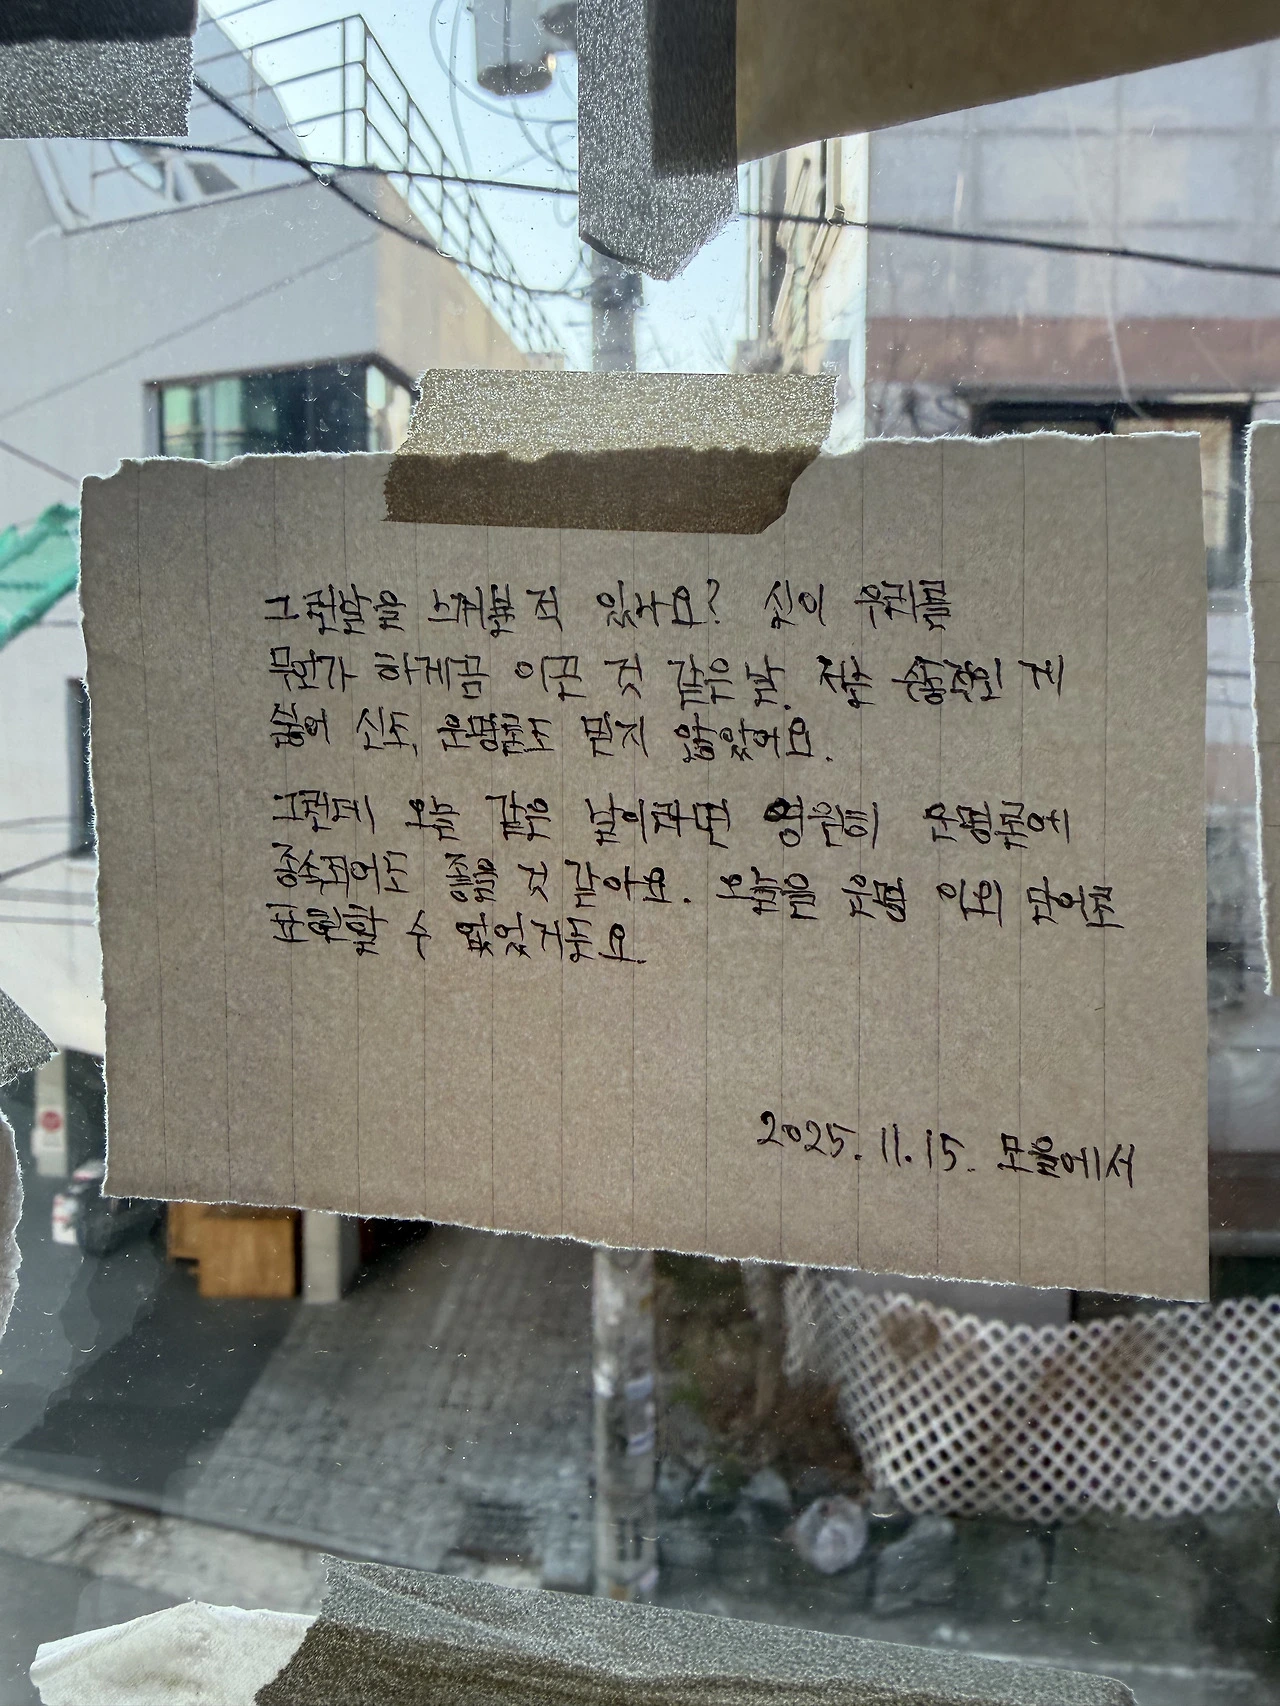 그런날을 느껴본 적 있나요? 신이 우리를
무언가 하게끔 이끈 것 같은 날. 저는 수동적인 게
싫어 신도, 운명론도 믿지 않았어요.
그런데 오늘 같은 날이라면 영원히 운명론에
종속되어도 좋을 것 같아요. 오늘을 운명 외의 단어로
표현할 수 없었거든요.
2025. 11. 15. 모을에서